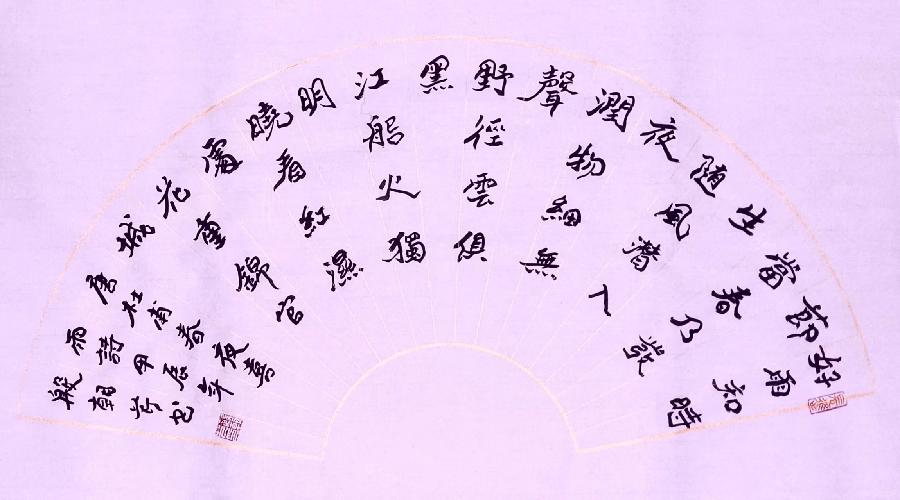 好雨知時
節
當春乃發
生
随風潛入
夜
潤物細無
聲
野徑雲俱
黑
江船火獨
明
曉看紅濕
處
花重錦官
城
唐杜甫春夜喜
雨詩甲辰年
朝學書